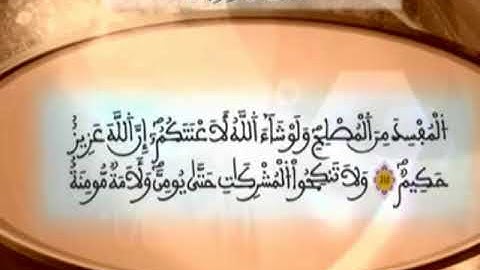 اَ۬لْمُفْسِدَ مِنَ اَ۬لْمُصْلِحِۖ وَلَوْ شَآءَ اَ۬للَّهُ لَأَعْنَتَكُمُۥٓۖ إِنَّ اَ۬للَّهَ عَزِيزٌ
حَكِيمٌۖ وَلَا تَنكِحُواْ اُ۬لْمُشْرِكَٰتِ حَتَّىٰ يُومِنَّۖ وَلَأَمَةٞ مُّومِنَةٌ